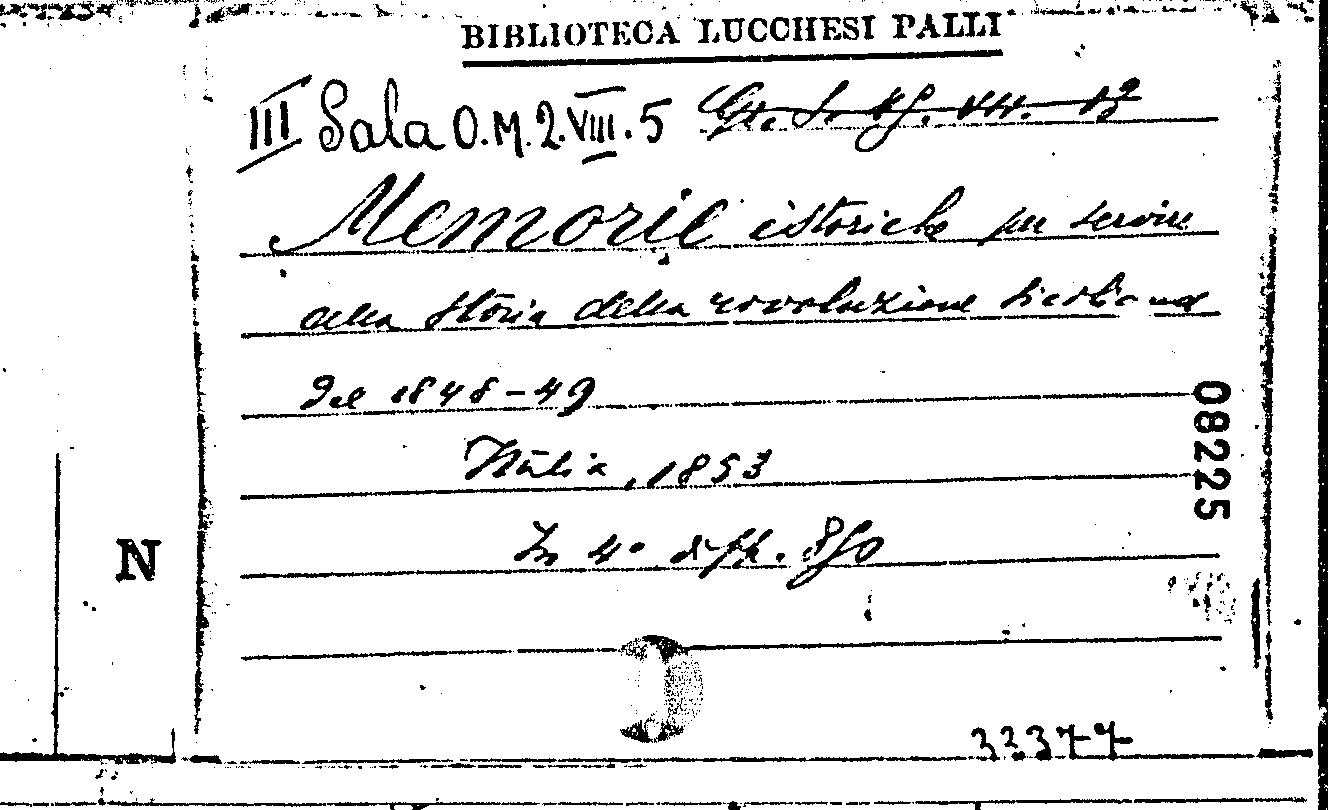 BIBLIOTECA LUCCHESI PALLI
III Sala O.M.2.VIII.5
Memorie istoriche per servire
alla Storia della rivoluzione Siciliana
del 1848-49
Italia, 1853
In 4º
08225
N
33377